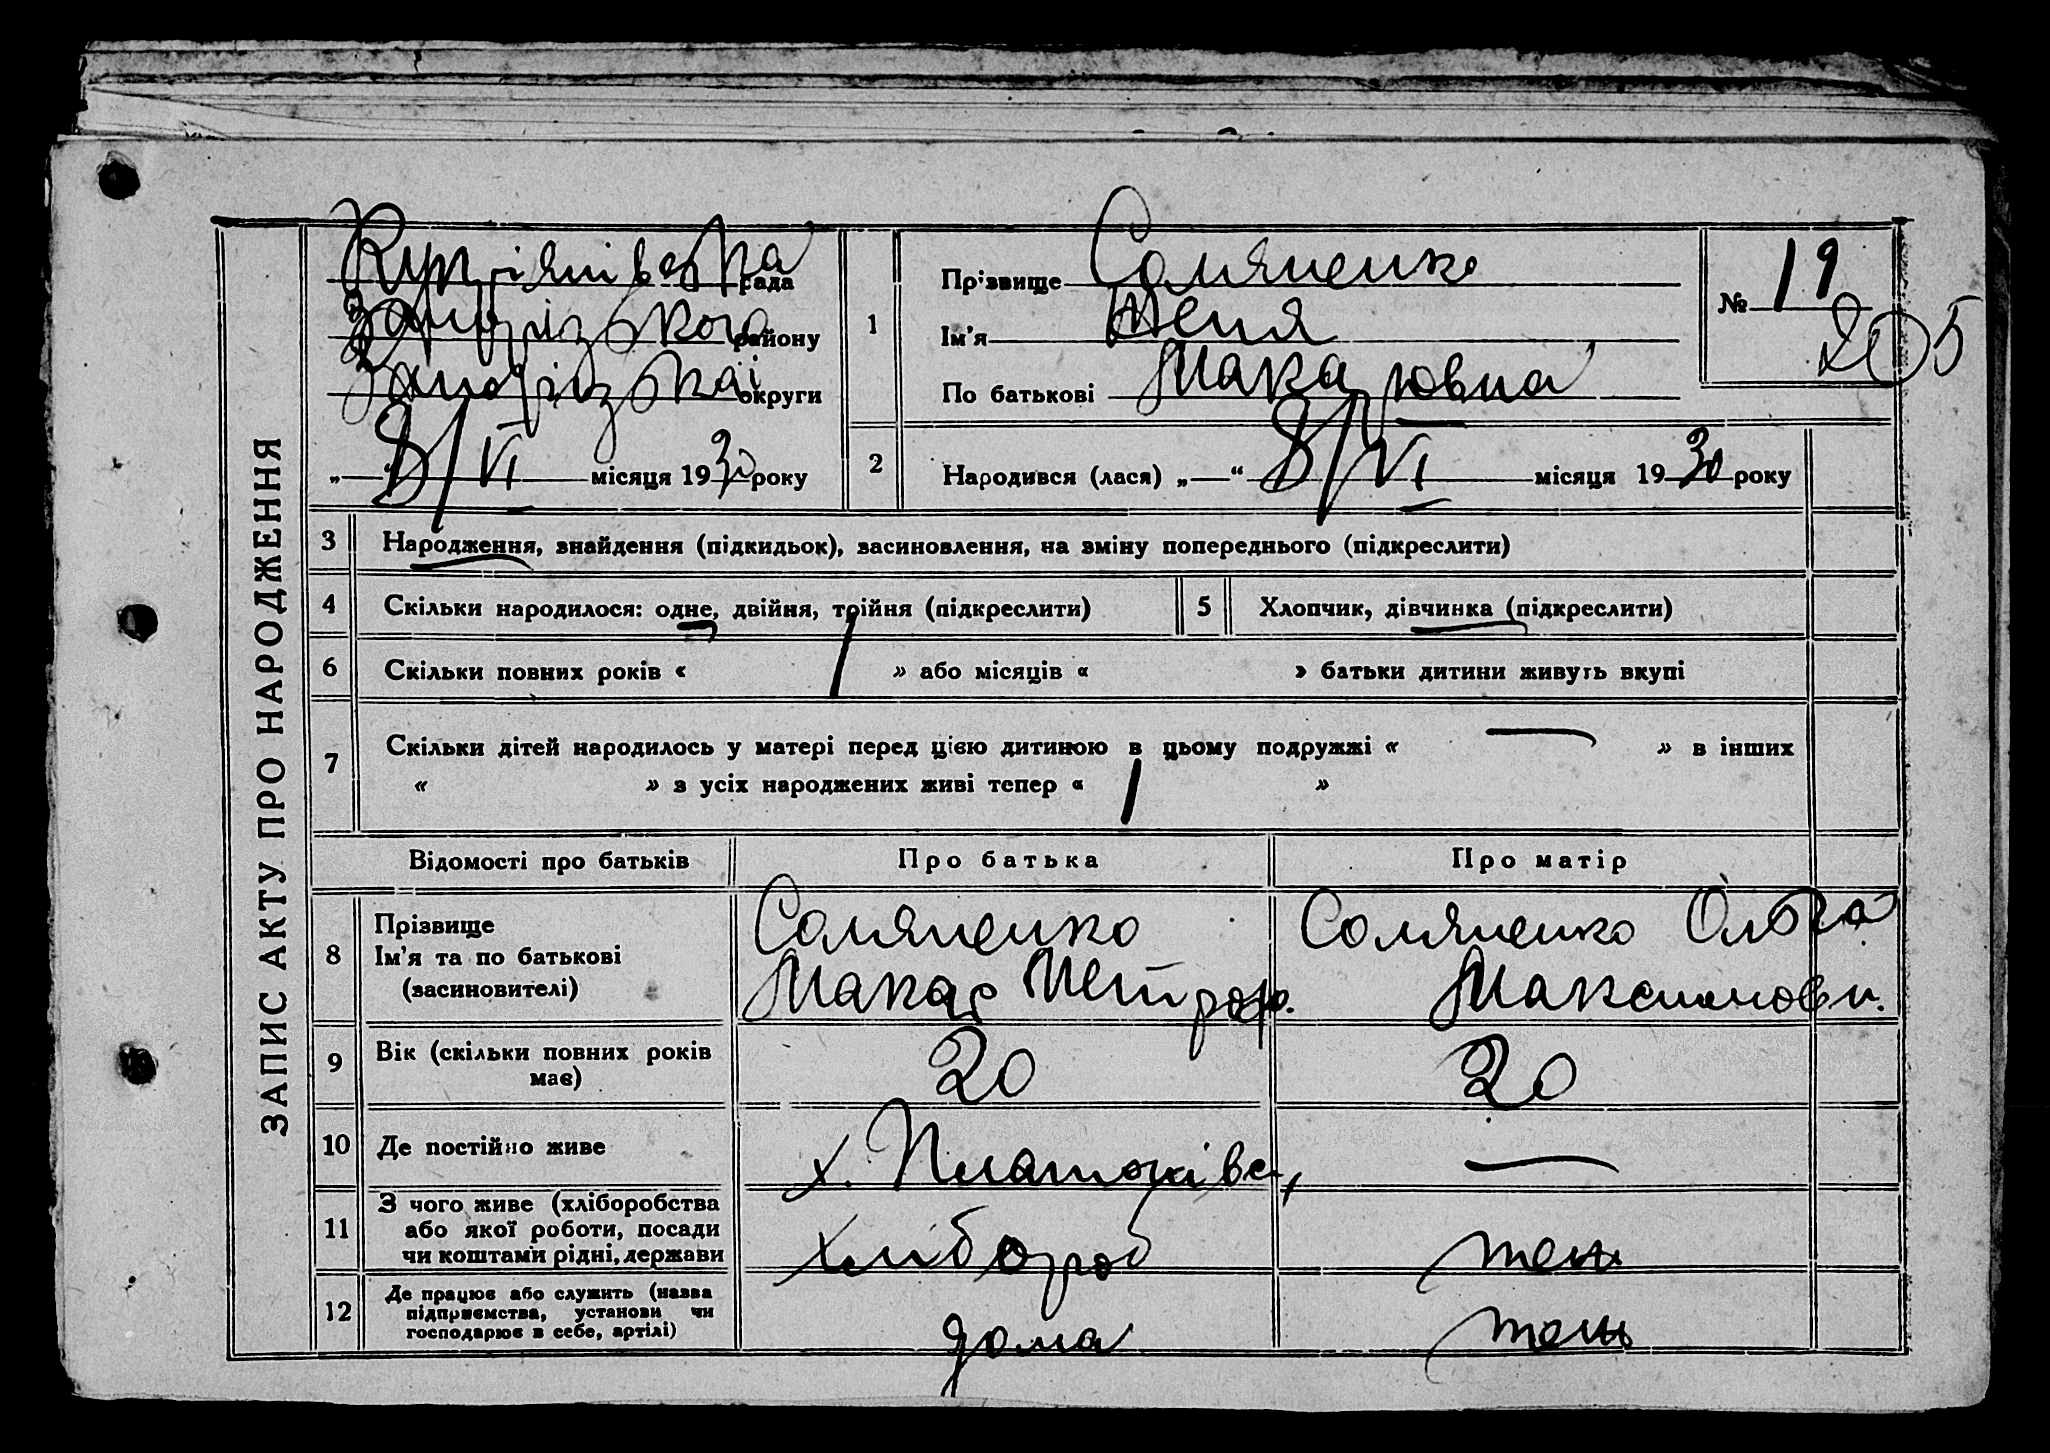 ЗАПИС АКТУ ПРО НАРОДЖЕННЯ
Купріянівська рада
Запорізького району
Запорізької округи
„ “ 8/VI місяця 1930 року
1
Прізвище Соляненко
Ім'я Женя
По батькові Макаровна
№ 19
205
2
Народився (лася) „ “ 8/VI місяця 1930 року
3 Народження, знайдення (підкидьок), засиновлення, на зміну попереднього (підкреслити)
4 Скільки народилося: одне, двійня, трійня (підкреслити)
5 Хлопчик, дівчинка (підкреслити)
6 Скільки повних років « 1 » або місяців « » батьки дитини живуть вкупі
7 Скільки дітей народилось у матері перед цією дитиною в цьому подружжі « — » в інших
« » з усіх народжених живі тепер « 1 »
Відомості про батьків Про батька Про матір
8 Прізвище
Ім'я та по батькові
(засиновителі)
Соляненко
Макар Петров.
Соляненко Ольга
Максимовн.
9 Вік (скільки повних років
має)
20 20
10 Де постійно живе х. —
11 З чого живе (хліборобства
або якої роботи, посади
чи коштами рідні, держави
хлібороб теж
12 Де працює або служить (назва
підприємства, установи чи
господарює в себе, артілі)
дома теж